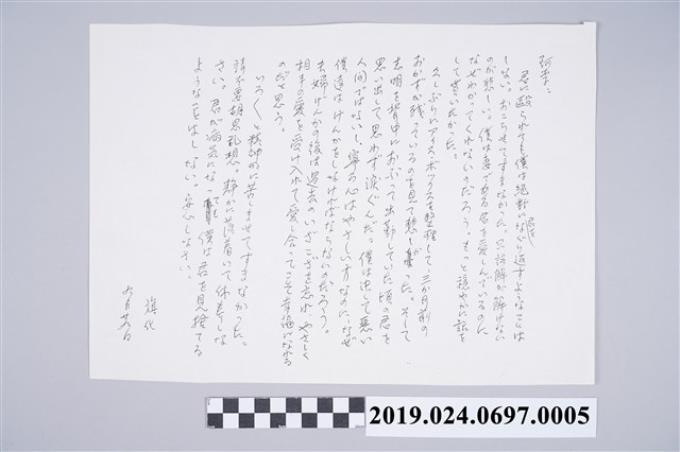 阿香：
君に殴られても僕は絶対に君をなぐり返すようなことは
しない。おこらせてすまなかった。只誤解が解けない
のが悲しい。僕は妻である君を愛しんでいるのに
なぜわかってくれないのだろう。もっと穏やかに話を
して貰いたかった。
久しぶりにアイス・ボックスを整理して、三か月前の
おかずが残っているのを見て悲しかった。そして
志明を背中におぶって出勤していた頃の君を
思い出して思わず涙ぐんだ。僕は決して悪い
人間ではないし、寧ろ心はやさしい方なのに、なぜ
僕達はけんかをしなければならないのだろう。
夫婦げんかの後は過去のいざこざを忘れ、やさしく
相手の愛を受け入れて愛し合ってこそ幸福になれる
のだと思う。
いろくと精神的に苦しませてすまなかった。
請不要胡思乱想。静かに落着いて休養しな
さい。君が病気になっても僕は君を見捨てる
ようなことはしない。安心しなさい。
旗化
2019.024.0697.0005